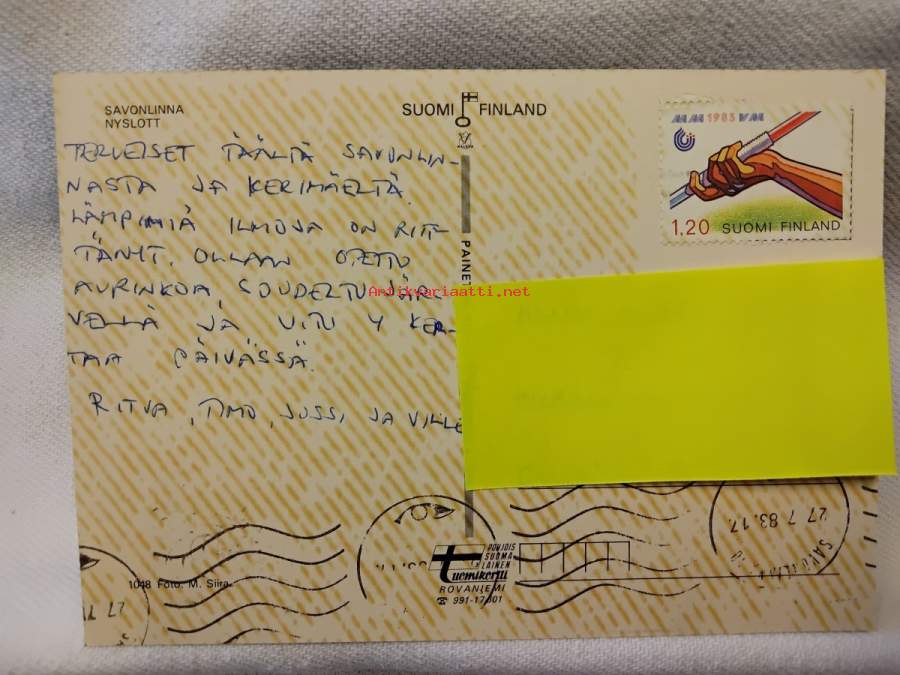 SAVONLINNA
NYSLOTT
SUOMI FINLAND
MM 1983 VM
1.20 SUOMI FINLAND
TERVEISET TÄÄLTÄ SAVONLIN-
NASTA JA KERIMÄELTÄ.
LÄMPIMIÄ ILMOJA ON RIIT-
TÄNYT. OLLAAN OTETTU
AURINKOA, SOUDELTU JÄR-
VELLÄ JA UITU 4 KER-
TAA PÄIVÄSSÄ.
RITVA, TIMO, JUSSI, JA VILLE
PAINET
Antikvariaatti.net
27 7 83.17
1048 Foto. M. Siira
POHJOIS
SUOMA
LAINEN
Tuomikortti
ROVANIEMI
☎ 991-17301
27 7